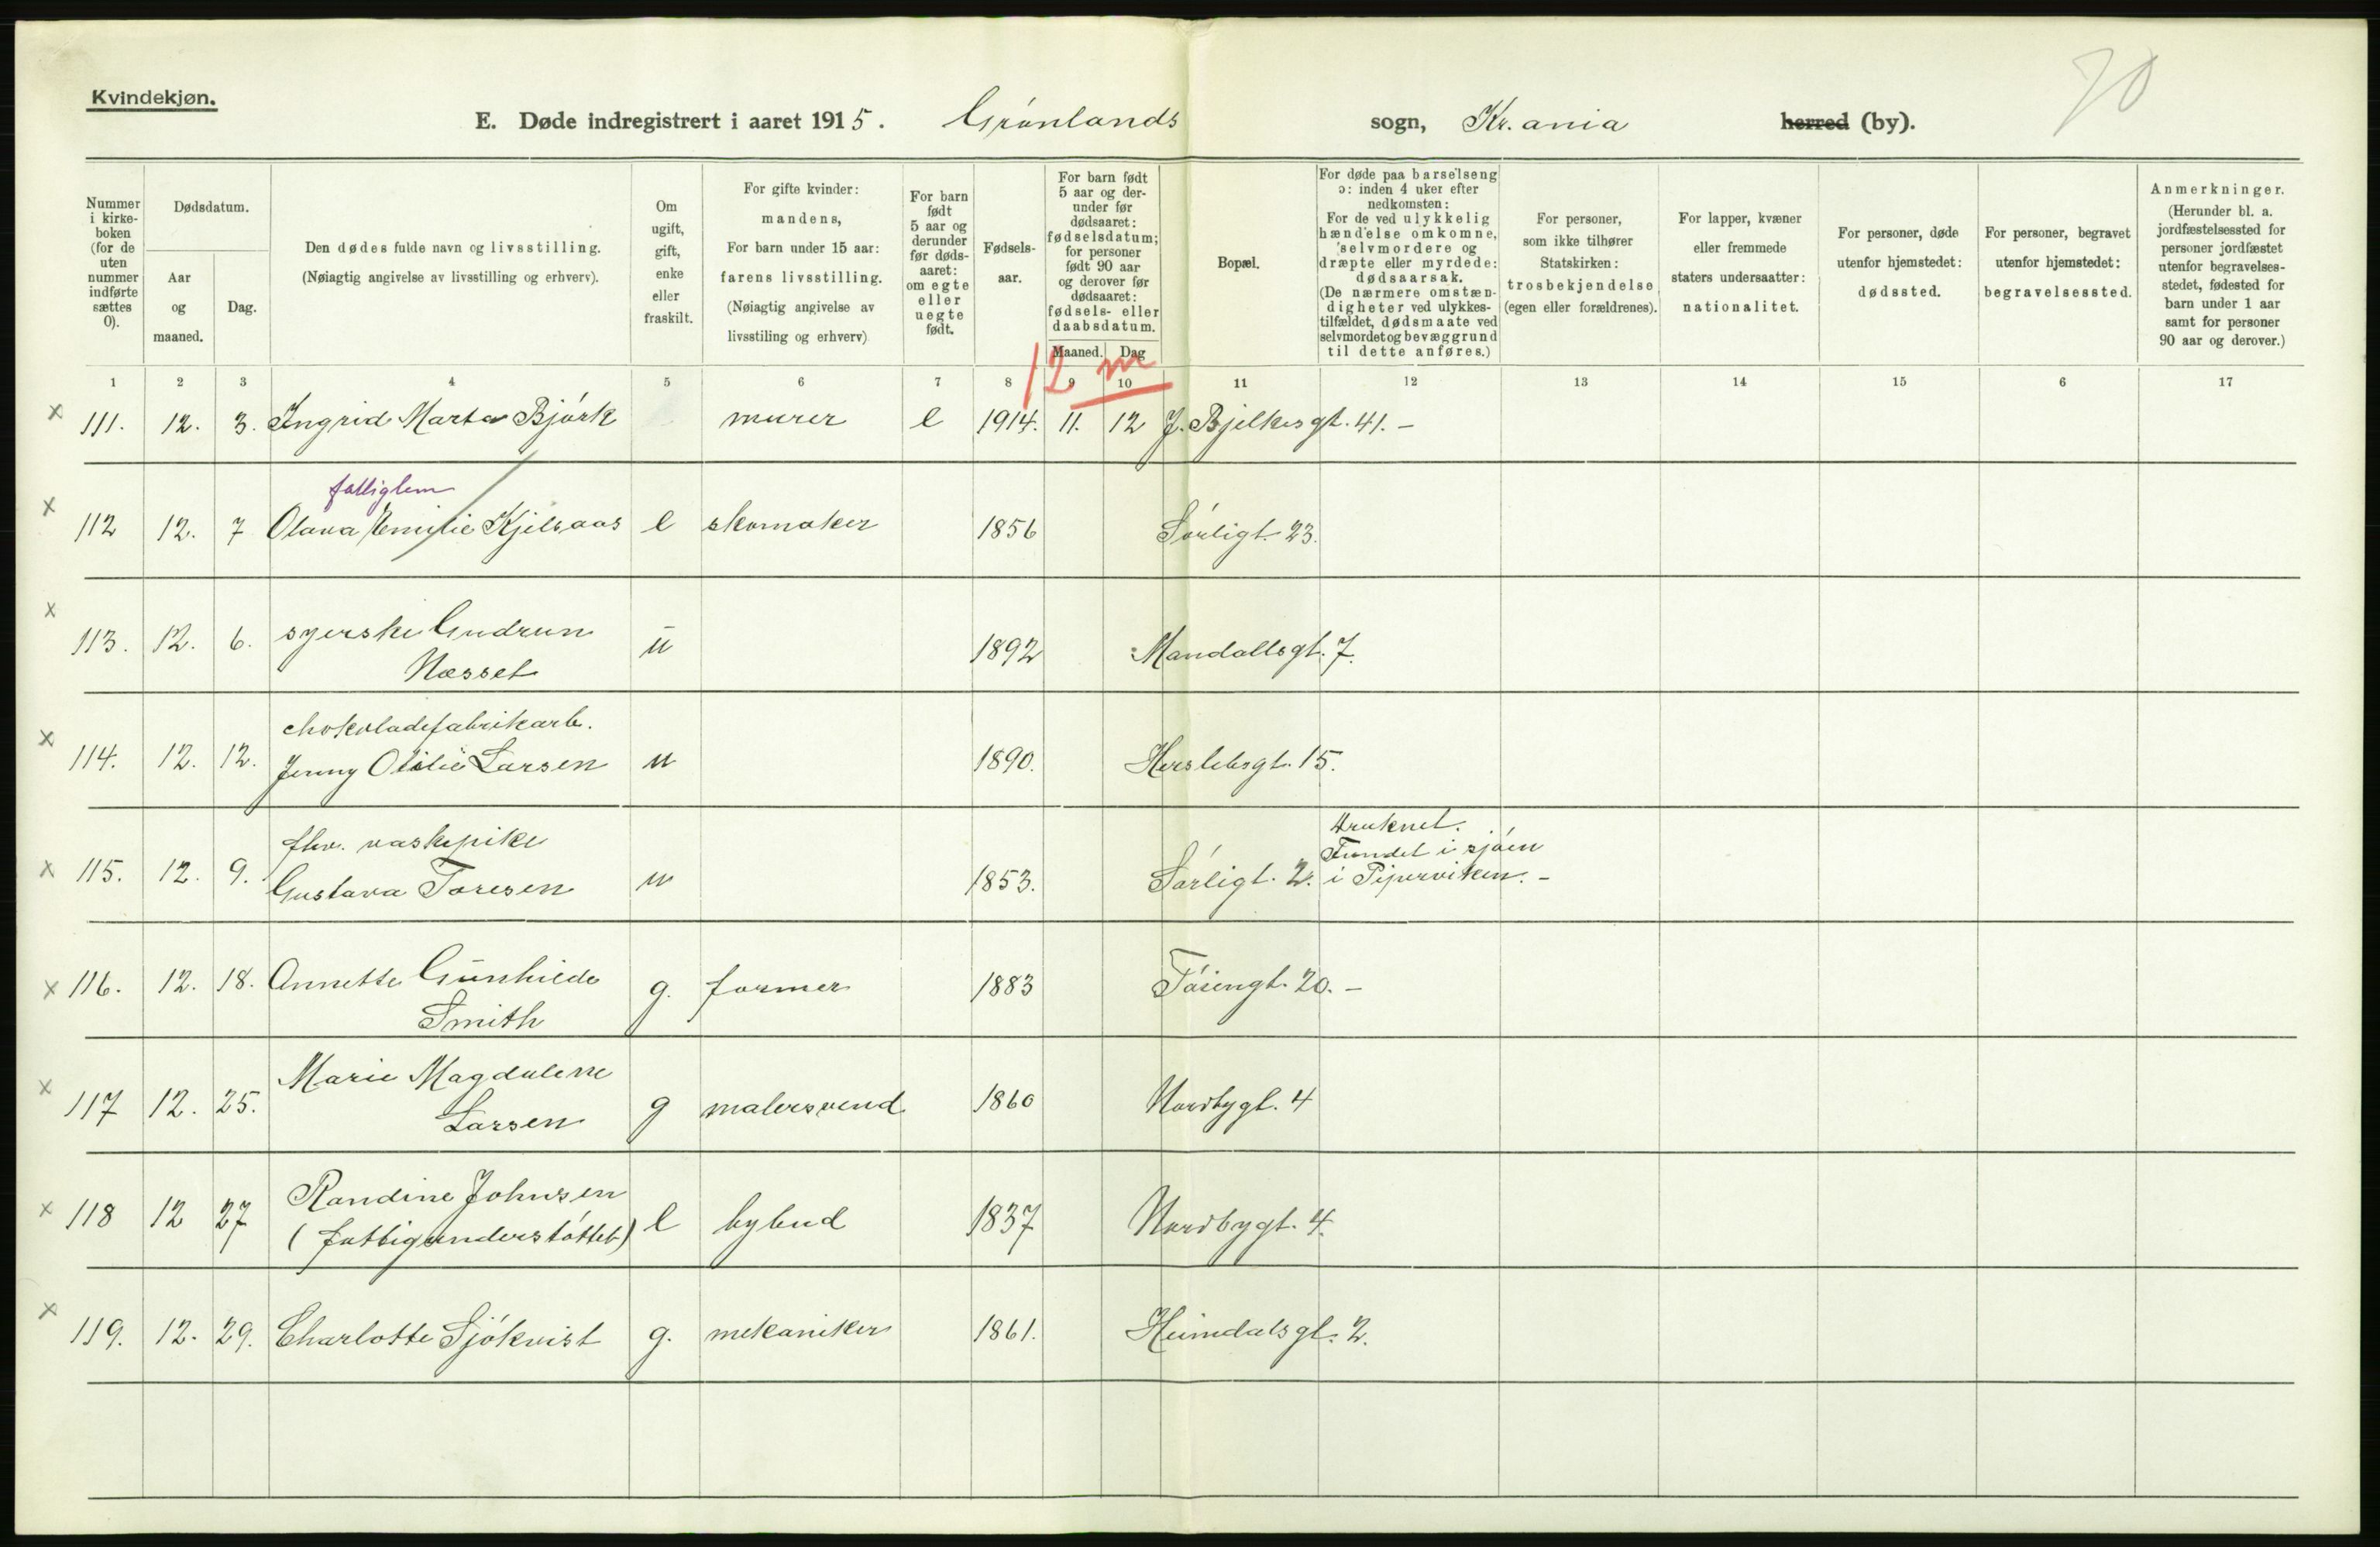 Kvindekjøn.
70
E. Døde indregistrert i aaret 1915. Grønlands sogn, Kr.ania herred (by).
Nummer i kirke-boken (for de uten nummer indførte sættes 0).
Dødsdatum.
Aar og maaned.
Dag.
Den dødes fulde navn og livsstilling.
(Nøiagtig angivelse av livsstilling og erhverv).
Om ugift, gift, enke eller fraskilt.
For gifte kvinder: mandens,
For barn under 15 aar: farens livsstilling.
(Nøiagtig angivelse av livsstiling og erhverv)
For barn født 5 aar og derunder før døds-aaret: om egte eller uegte født.
Fødsels-aar.
For barn født 5 aar og der-under før dødsaaret: fødselsdatum; for personer født 90 aar og derover før dødsaaret: fødsels- eller daabsdatum.
Maaned. Dag
Bopæl.
For døde paa barselseng ɔ: inden 4 uker efter nedkomsten:
For de ved ulykkelig hændelse omkomne, selvmordere og dræpte eller myrdede: dødsaarsak.
(De nærmere omstæn-digheter ved ulykkes-tilfældet, dødsmaate ved selvmordet og bevæggrund til dette anføres.)
For personer, som ikke tilhører Statskirken: trosbekjendelse (egen eller forældrenes).
For lapper, kvæner eller fremmede staters undersaatter: nationalitet.
For personer, døde utenfor hjemstedet: dødssted.
For personer, begravet utenfor hjemstedet: begravelsessted.
Anmerkninger.
(Herunder bl. a. jordfæstelsessted for personer jordfæstet utenfor begravelses-stedet, fødested for barn under 1 aar samt for personer 90 aar og derover.)
12 m
1 2 3 4 5 6 7 8 9 10 11 12 13 14 15 6 17
x 111. 12. 3. Ingrid Marta Bjørk murer e 1914. 11. 12 J. Bjelkesgt. 41. –
fattiglem
x 112 12. 7 Olava Emilie Kjelsaas e skomaker 1856 Sørligt. 23.
x 113. 12. 6. syerske Gudrun u 1892 Mandallsgt. 7.
Næsset
chokoladefabrikarb.
x 114. 12. 12. Jenny Otilie Larsen u 1890. Herslebsgt. 15.
fhv. vaskepike
x 115. 12. 9. Gustava Toresen u 1853. Sørligt. 2.
druknet.
Fundet i sjøen
i Pipervikem. –
x 116. 12. 18. Annette Gunhilde g. former 1883 Tøiengt. 20. –
Smith
Marie Magdalene
x 117 12. 25. Larsen g malersvend 1860 Nordbygt. 4
Randine Johnsen
x 118 12 27 (fattigunderstøttet) e bybud 1837 Nordbygt. 4.
x 119. 12. 29. Charlotte Sjökvist g. mekaniker 1861. Heimdalsgt. 2.